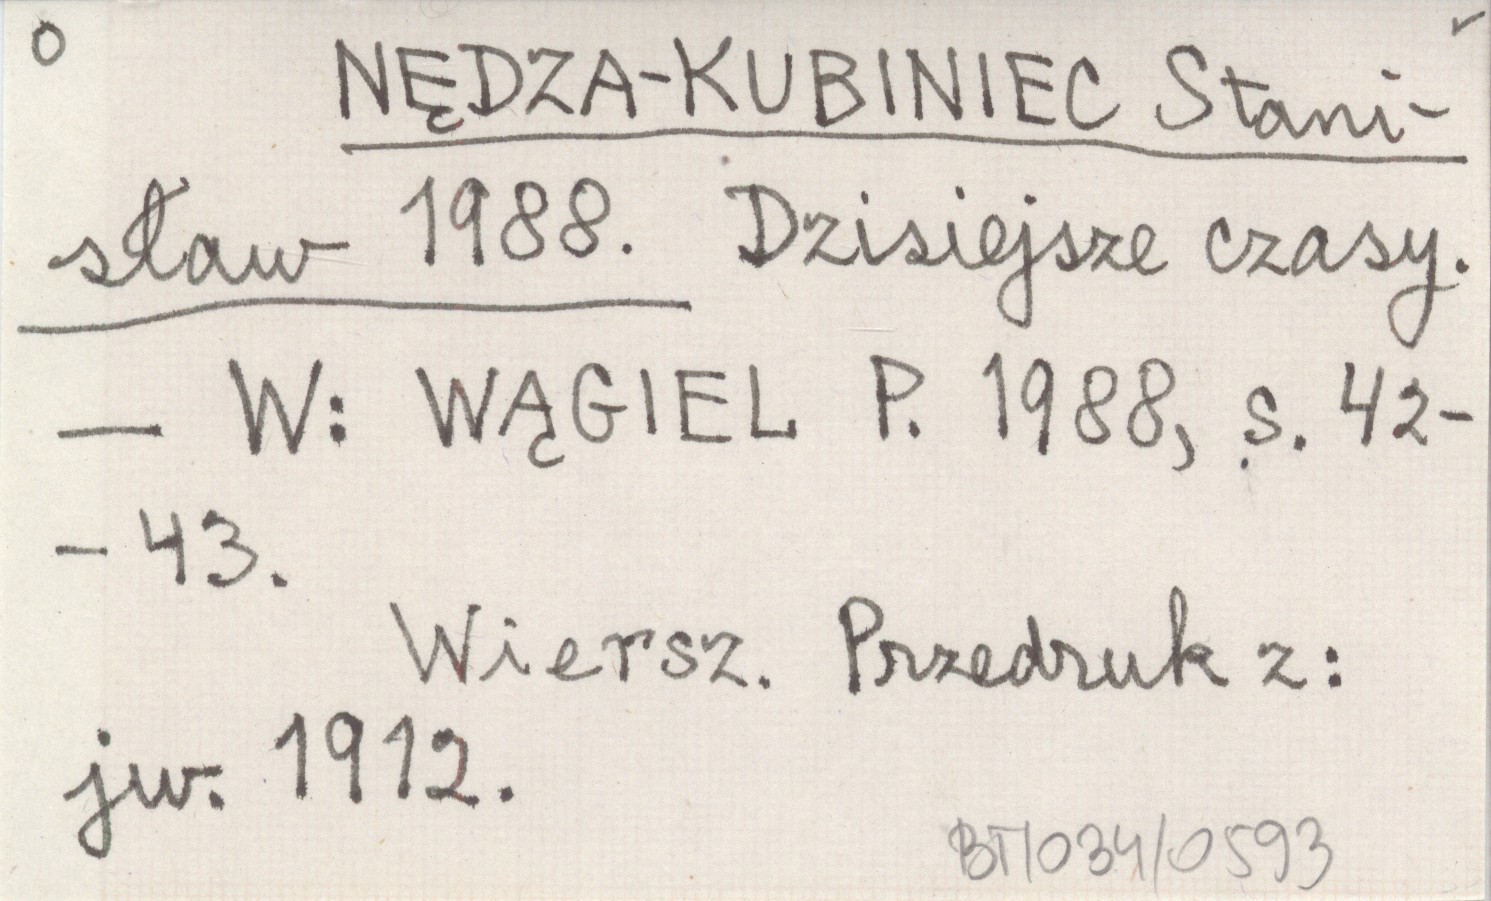 O
NĘDZA-KUBINIEC Stani-
sław 1988. Dzisiejsze czasy.
— W: WĄGIEL P. 1988, s. 42-
- 43.
Wiersz. Przedruk z:
jw. 1912.
BT/034/0593